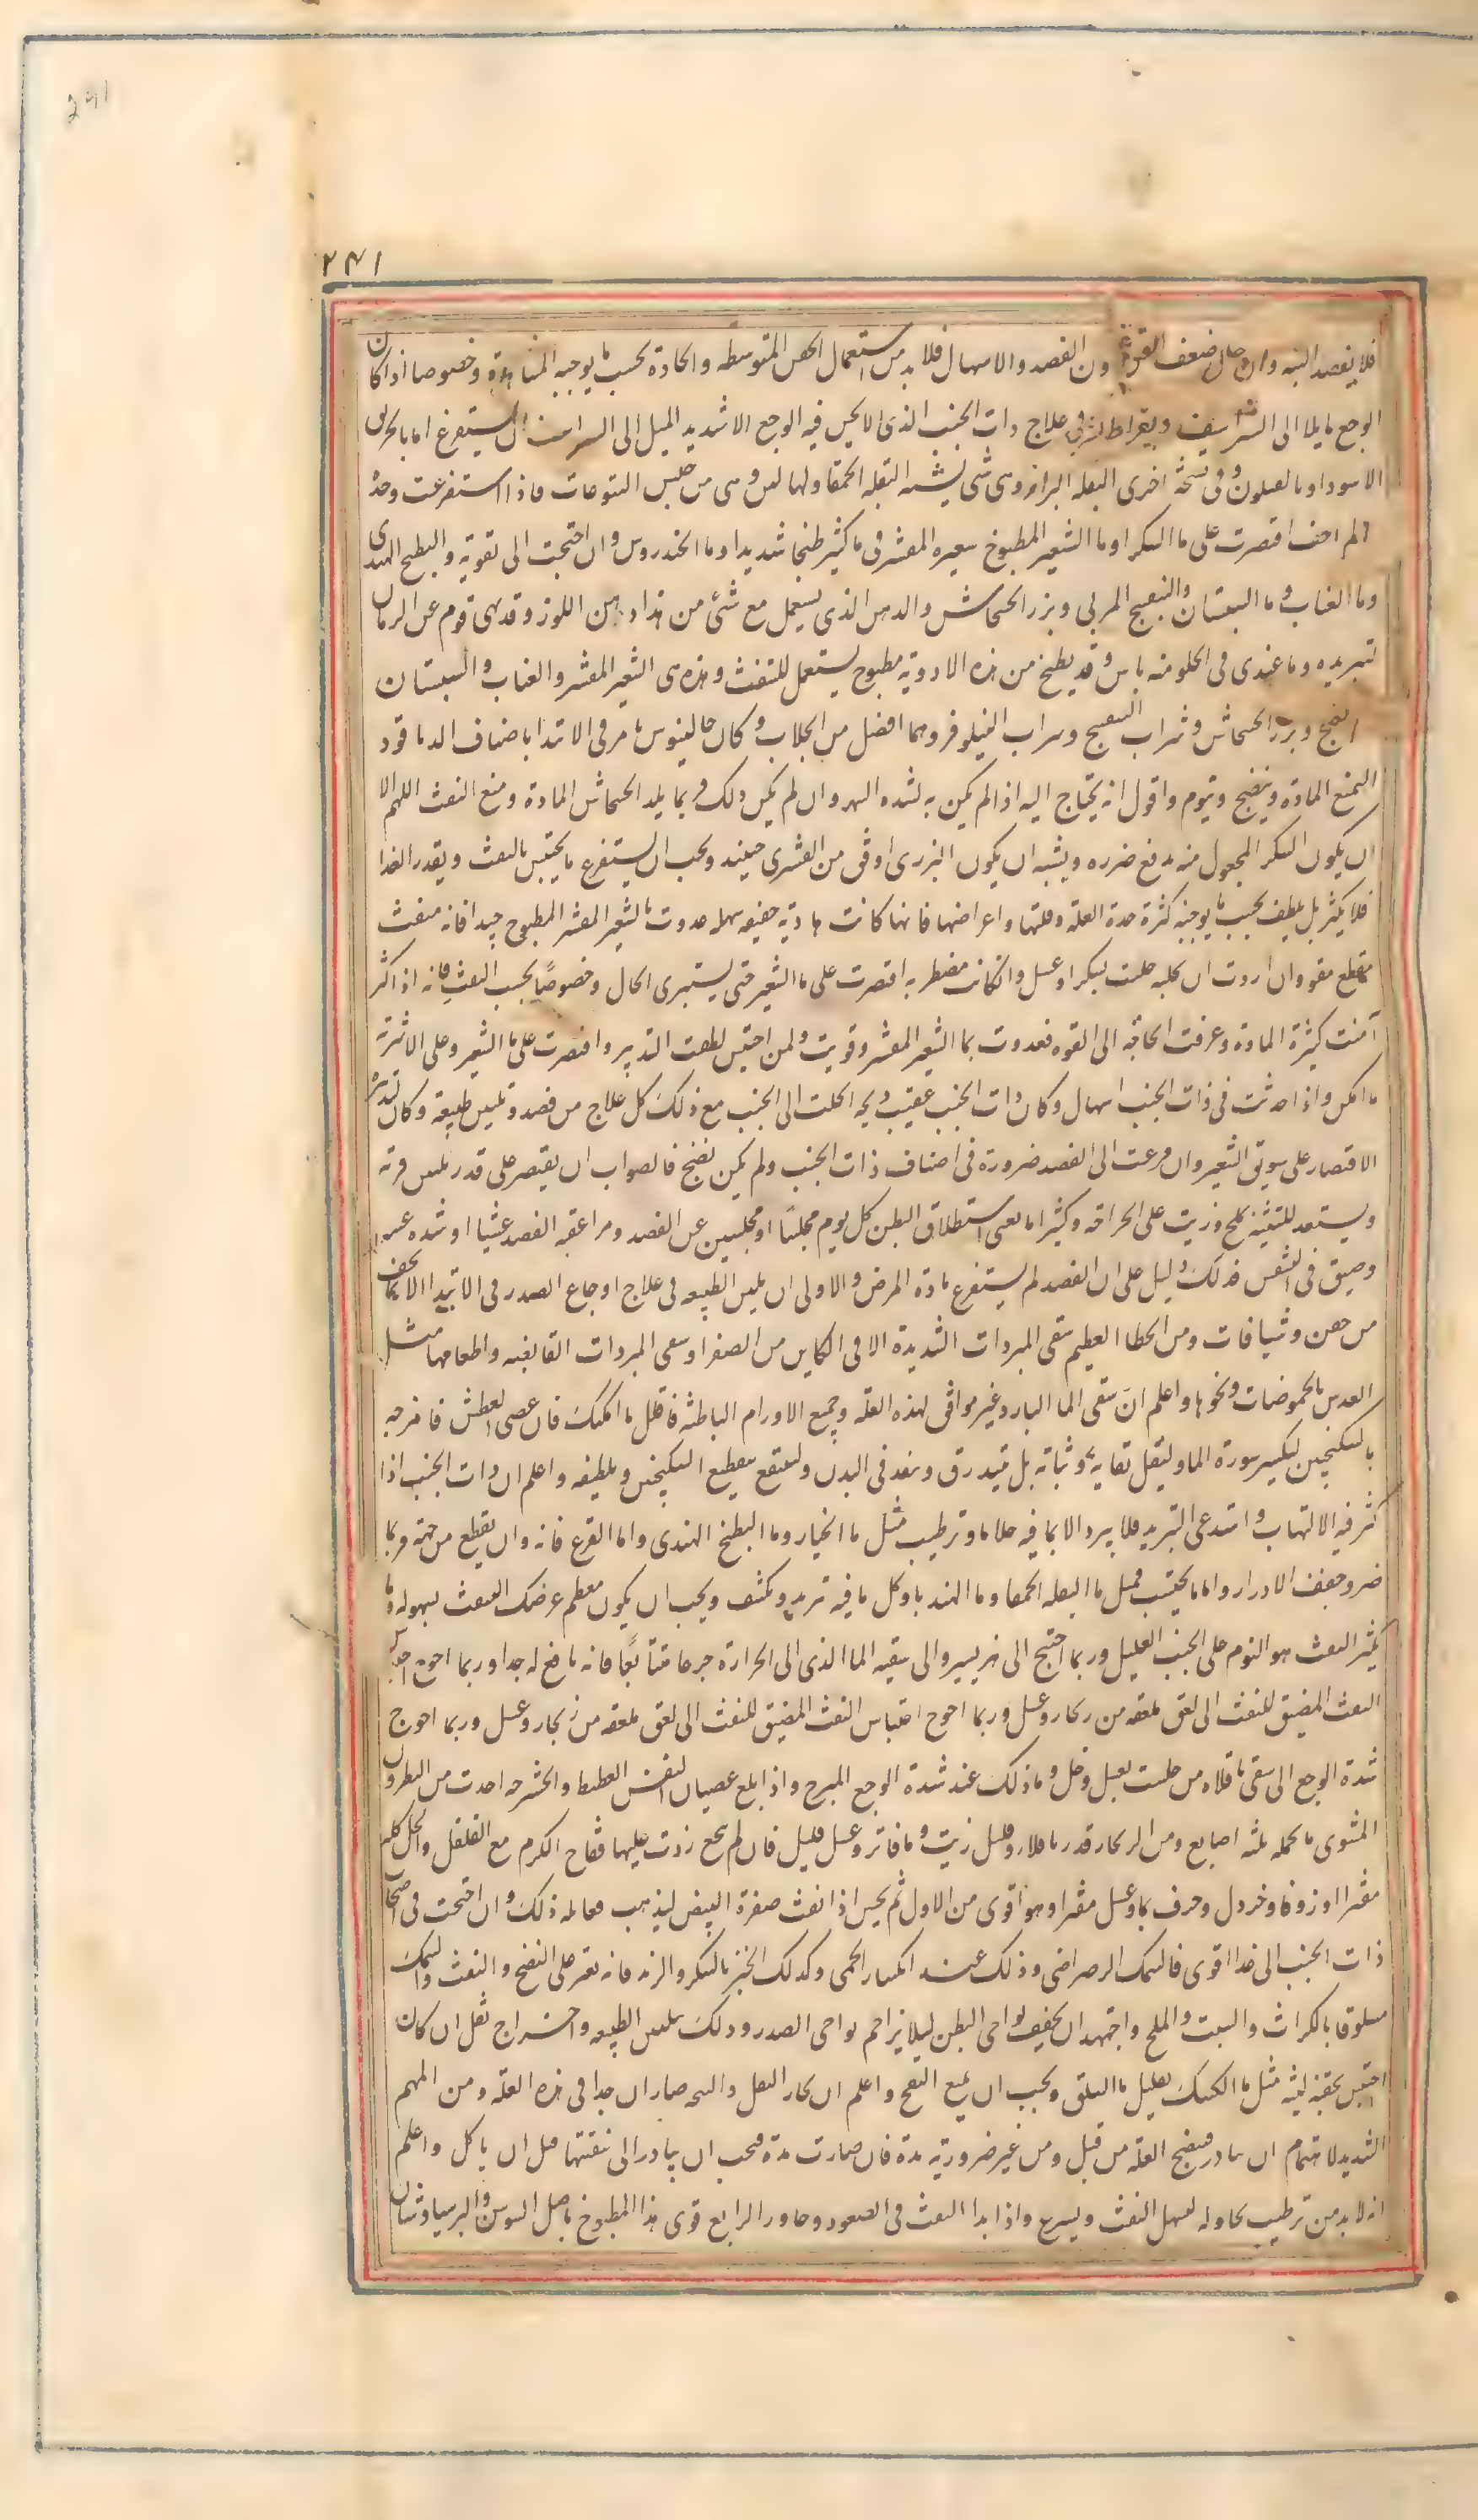 241
٢٤١
فلا يفصد البته وان حال ضعف القوة دون الفصد والاسهال فلا بد من استعمال الحقن المتوسطه والحادة بحسب ما يوجبه المشاهدة وخصوصا اذا كان
الوجع مايلا الى الشراسيف وبقراط يشير فى علاج ذات الجنب الذى لا يحس فيه الوجع الا شديد الميل الى الشراسيف ان يستفرغ اما بالخربق
الاسود او بالفليون وفى نسخة اخرى البقله البرانه وهى شى يشبه البقله الحمقا ولها لبن وهى من جنس اليتوعات فاذا استفرغت وحده
الم اخف اقتصرت على ما السكر او ما الشعير المطبوخ شعيره المقشر فى ما كثير طبخا شديدا وما الخندروس وان احتجت الى تقوية والبطيخ الهندى
وما العناب وما السبستان والبنفسج المربى وبزر الخشخاش والدهن الذى يستعمل مع شئ من هذا دهن اللوز وقد نهى قوم عن الرمان
لتبريده وما عندى فى الحلو منه باس وقد يطبخ من هذه الادوية مطبوخ يستعمل للنفث وهذه هى الشعير المقشر والعناب والسبستان
البنفسج وبزر الخشخاش وشراب البنفسج وشراب النيلوفر وهما افضل من الجلاب وكان جالينوس يامر فى الابتدا باصناف الدياقود
المنع المادة وينضج وتنوم واقول انه يحتاج اليه اذا لم يكن به لشده السهر وان لم يكن ذلك فربما بلد الخشخاش المادة ومنع النفث اللهم الا
ان يكون السكر المجعول منه يدفع ضرره ويشبه ان يكون البزرى اوفق من القشرى حينئذ ويجب ان يستفرغ ما يحتبس بالنفث ويقدر الغذا
فلا يكثر بل يلطف بحسب ما يوجبه كثرة حدة العلة وقلتها واعراضها فانها كانت هادية خفيفه سهله غدوت بالشعير المقشر المطبوخ جيدا فانه منفث
مقطع مقو وان اردت ان يحليه حليت بسكر او عسل وان كانت مضطربه اقتصرت على ما الشعير حتى يستبرى الحال وخصوصا بحسب النفث فانه اذا كثر
آمنت كثرة المادة وعرفت الحاجة الى القوه فغدوت بما الشعير المقشر وقويت ولمن احتبس لطفت التدبير واقتصرت على ما الشعير وعلى الاشربة
ما امكن واذا حدثت فى ذات الجنب اسهال وكان ذات الجنب عقيب ذبحه انحلت الى الجنب مع ذلك كل علاج من فصد وتليين طبيعة وكان تدبيره
الاقتصار على سويق الشعير وان دعت الى الفصد ضرورة فى اصناف ذات الجنب ولم يكن نضج فالصواب ان يقتصر على قدر ثلثى مرته
ويستعد للتثنية بملح وزيت على الجراحة وكثيرا ما يعنى استطلاق البطن كل يوم مجلسا او مجلسين عن الفصد ومر اعقبه الفصد غشيا او شده عسر
وضيق فى النفس فذلك دليل على ان الفصد لم يستفرغ مادة المرض والاولى ان يلين الطبيعه فى علاج اوجاع الصدر فى الابتدا الا بما يخف
من حقن وشيافات ومن الخطا العظيم سقى المبردات الشديدة الا فى الكاين من الصفرا وسقى المبردات القابضه واطعامها مثل
العدس بالحموضات ونحوها واعلم ان سقى الما البارد غير موافق لهذه العله وجميع الاورام الباطنة فاقلل ما امكنك فان عصى العطش فامزجه
بالسكنجبين ليكسر سورة الما وليقل بقايه وثباته بل يتبدرق وينفذ فى البدن ولينتفع بتقطيع السكنجبين وتلطيفه واعلم ان ذات الجنب اذا
كثر فيه الالتهاب واستدعى التبريد فلا يبرد الا بما فيه جلا ما وترطيب مثل ما الخيار وما البطيخ الهندى واما القرع فانه وان يقطع من جهة فربما
ضر وضعف الادرار واما ما يجتنب فمثل ما البقله الحمقا وما الهندبا وكل ما فيه تبريد وتكثف ويجب ان يكون معظم غرضك التنفث بسهوله وما
يكثر النفث هو النوم على الجنب العليل وربما احتيج الى هز يسير والى سقيه الما الذى الى الحرارة جرعا متتابعا فانه نافع له جدا وربما احوج احتباس
النفث المضيق للنفث الى لعق ملعقه من زنجار وعسل وربما احوج احتباس النفث المضيق للنفث الى لعق ملعقه من زنجار وعسل وربما احوج
شدة الوجع الى سقى باقلاه من حلتيت بعسل وخل وما ذلك عند شدة الوجع المبرح واذا بلغ عصيان النفث الغطيط والحشرجه اخذت من النطرون
المشوى ما تحمله ثلثه اصابع ومن الزنجار قدر باقلاه وقليل زيت وما فاتر وعسل قليل فان لم ينجع زدت عليها فقاح الكرم مع الفلفل والخل كله
مفترا او زوفا وخردل وحرف بما وعسل مفترا وهو اقوى من الاول ثم يحس اذا نفث صفرة البيض ليذهب بغايله ذلك وان احتجت فى اصحاب
ذات الجنب الى غذا اقوى فالسمك الرضراضى وذلك عند انكسار الحمى وكذلك الخبز بالسكر والزبد فانه يعين على النضج والنفث والسمك
مسلوقا بالكراث والشبت والملح واجتهد ان تخفف نواحى البطن ليلا يزاحم نواحى الصدر وذلك بتليين الطبيعه واخراج ثفل ان كان
احتبس بحقنة لينه مثل ما الكشك بقليل ما السلق ويجب ان يمنع النفخ واعلم ان بخار الثفل والنفخه ضاران جدا فى هذه العله ومن المهم
الشديد الاهتمام ان تبادر فتنضج العلة من قبل ومن غير ضرورتيه مدة فان صارت مدة فيجب ان يبادر الى تنقيتها قبل ان ياكل واعلم
انه لا بد من ترطيب تحاوله لتسهل النفث ويسرع واذا بدا النفث فى الصعود وجاوز الرابع قوى هذا المطبوخ باصل السوس والبرسياوشان